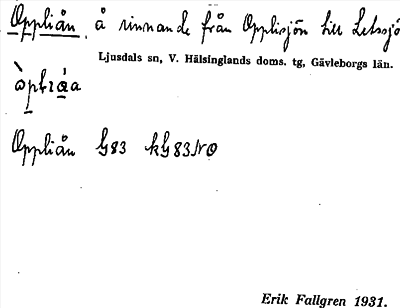 Oppliån. å rinnande från Opplisjön till Letssjö
Ljusdals sn, V. Hälsinglands doms. tg, Gävleborgs län.
Oppliån G83 kG83NO
Erik Fallgren 1931.